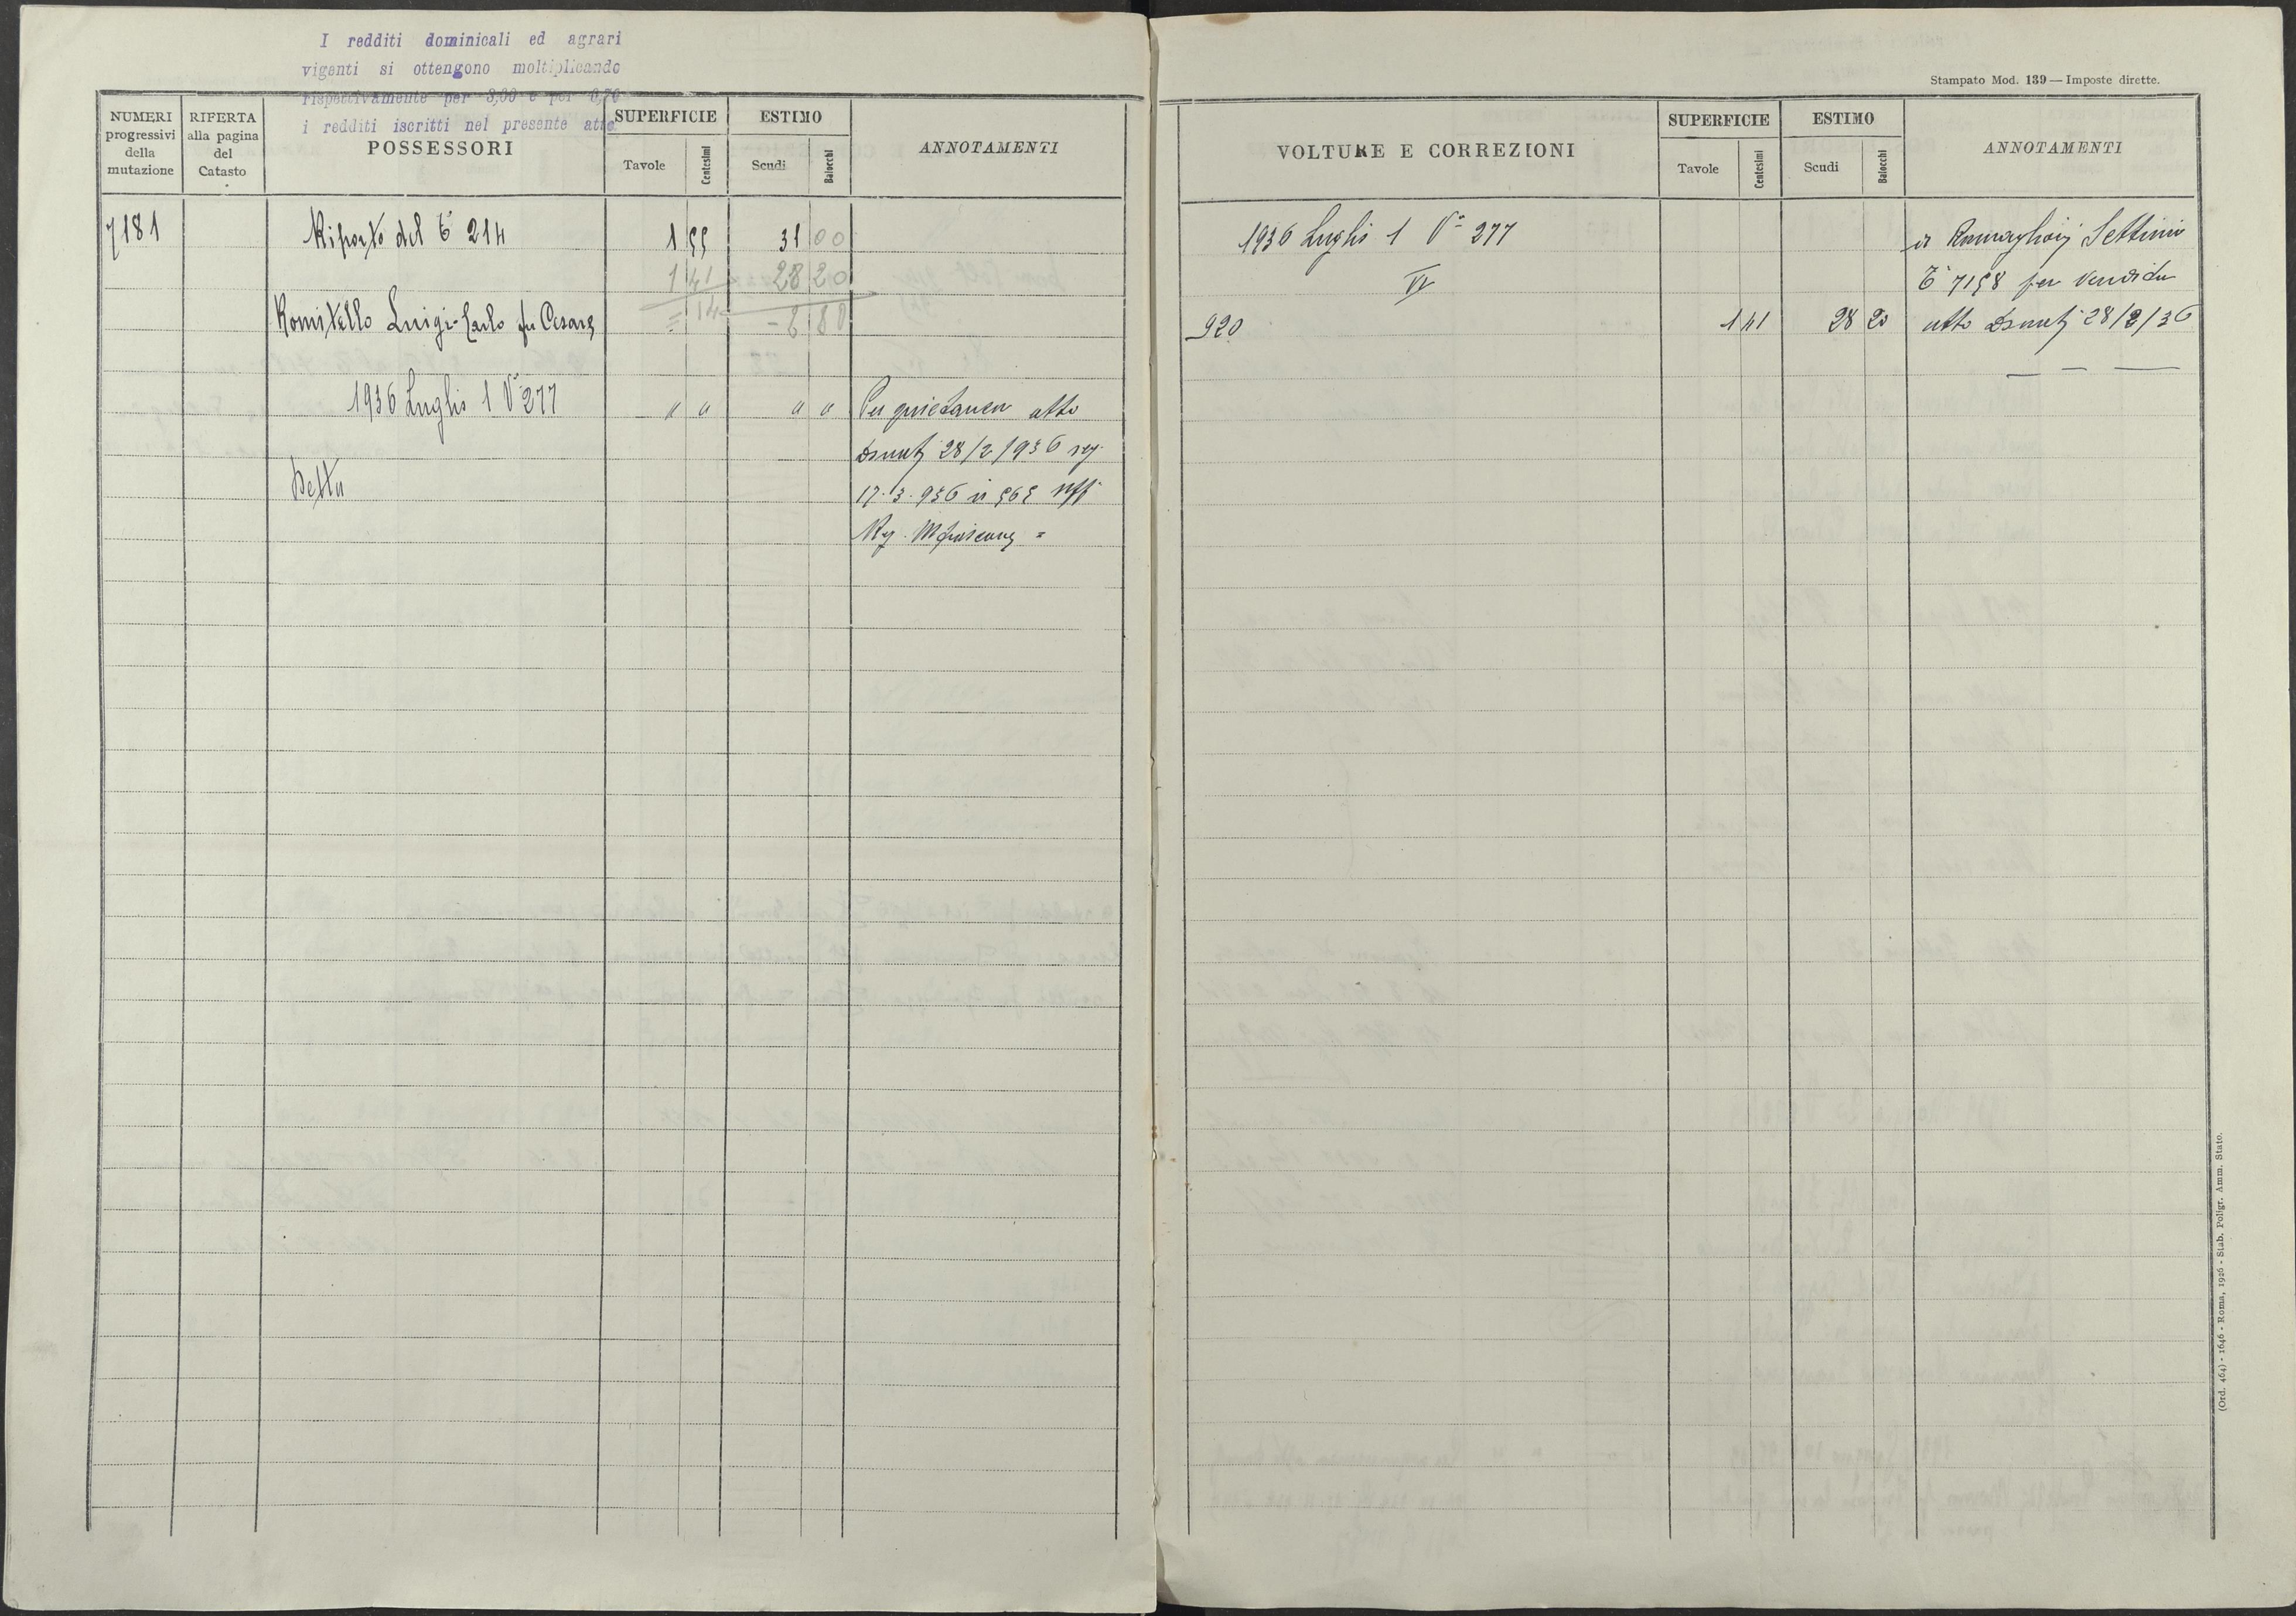 I redditi dominicali ed agrari
vigenti si ottengono moltiplicando
rispettivamente per 3,00 e per 0,70
i redditi iscritti nel presente atto.
NUMERI progressivi della mutazione
RIFERTA alla pagina del Catasto
POSSESSORI
SUPERFICIE
Tavole
Centesimi
ESTIMO
Scudi
Baiocchi
ANNOTAMENTI
7181 Riporto del T° 214 1 55 31 00
1 41 28 20
Romitello Luigi-Carlo fu Cesare = 14 - 2 80
1936 Luglio 1 V° 277 " " " " Per quietanza atto
28/2/1936 reg.
Detto 17.3.936 n 565 uff
Reg.
Stampato Mod. 139 — Imposte dirette.
VOLTURE E CORREZIONI
SUPERFICIE
Tavole
Centesimi
ESTIMO
Scudi
Baiocchi
ANNOTAMENTI
1936 Luglio 1 V° 277 a Settimio
VI T° 7158 per vendita
920 1 41 28 20 atto 28/2/36
(Ord. 464) - 1646 - Roma, 1926 - Stab. Poligr. Amm. Stato.